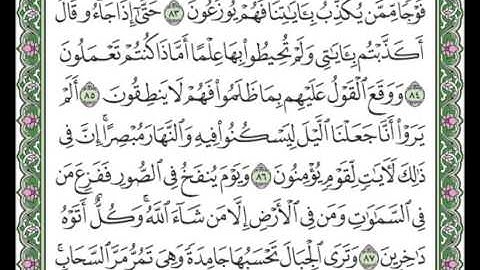 فَوْجًا مِّمَّن يُكَذِّبُ بِـَٔايَٰتِنَا فَهُمْ يُوزَعُونَ ٨٣ حَتَّىٰٓ إِذَا جَآءُو قَالَ
أَكَذَّبْتُم بِـَٔايَٰتِى وَلَمْ تُحِيطُوا۟ بِهَا عِلْمًا أَمَّاذَا كُنتُمْ تَعْمَلُونَ
٨٤ وَوَقَعَ ٱلْقَوْلُ عَلَيْهِم بِمَا ظَلَمُوا۟ فَهُمْ لَا يَنطِقُونَ ٨٥ أَلَمْ
يَرَوْا۟ أَنَّا جَعَلْنَا ٱلَّيْلَ لِيَسْكُنُوا۟ فِيهِ وَٱلنَّهَارَ مُبْصِرًا ۚ إِنَّ فِى
ذَٰلِكَ لَـَٔايَٰتٍ لِّقَوْمٍ يُؤْمِنُونَ ٨٦ وَيَوْمَ يُنفَخُ فِى ٱلصُّورِ فَفَزِعَ مَن
فِى ٱلسَّمَٰوَٰتِ وَمَن فِى ٱلْأَرْضِ إِلَّا مَن شَآءَ ٱللَّهُ ۚ وَكُلٌّ أَتَوْهُ
دَٰخِرِينَ ٨٧ وَتَرَى ٱلْجِبَالَ تَحْسَبُهَا جَامِدَةً وَهِىَ تَمُرُّ مَرَّ ٱلسَّحَابِ ۚ